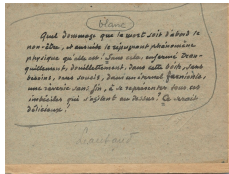 blanc
Quel dommage que la mort soit d'abord le
non-être, et ensuite le répugnant phénomène
physique qu'elle est ! Sans cela, enfermé tran-
quillement, douillettement, dans cette boîte, sans
besoins, sans soucis, dans un éternel farniente,
une rêverie sans fin, à se représenter tous ces
imbéciles qui s'agitent au-dessus ! Ce serait
délicieux !